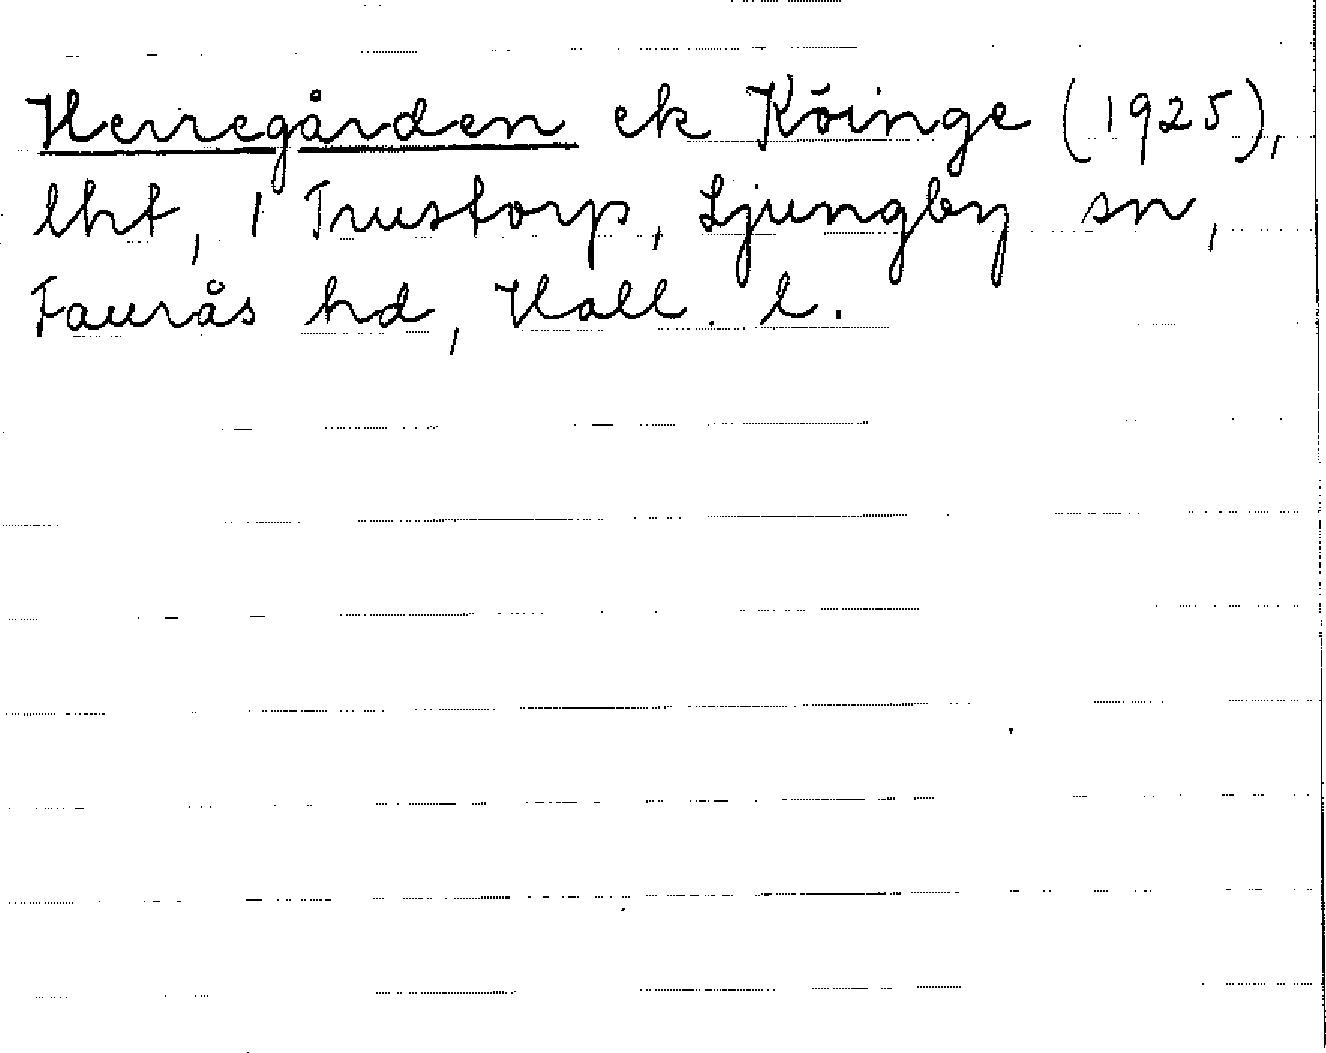 Herregården ek Köinge (1925),
lht, 1 Trustorp, Ljungby sn,
Faurås hd, Hall. l.